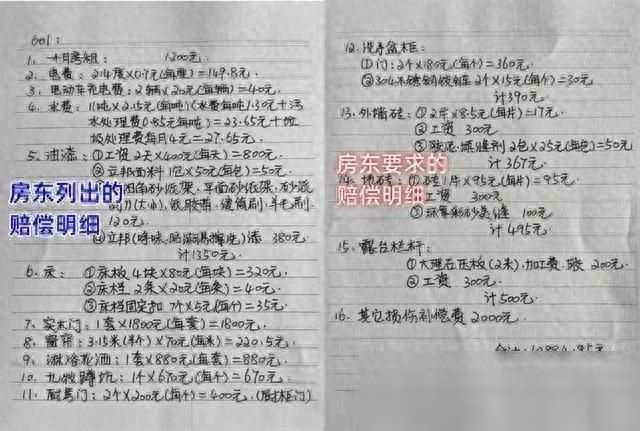 601:
1、十月房租: 1200元.
2、电费: 214度×0.7元(每度)=149.8元.
3、电动车充电费: 2辆×20元(每辆)=40元.
4、水费: 11吨×2.15元(每吨)(水费每吨1.30元+污
水处理费0.85元每吨)=23.65元+垃
圾处理费每月4元=27.65元.
5、油漆: ①工资 2天×400元(每天)=800元.
②立邦面料 1包×50元(每包)=50元.
砂纸架、平面砂纸架、砂纸
(大小)、纸胶带、滚筒刷、羊毛刷
120元.
④立邦(净味 易擦洗)漆 380元.
计1350元.
6、床: ①床板 4块×80元(每块)=320元.
②床档 2条×20元(每条)=40元.
③床档固定扣 7个×5元(每个)=35元.
7、实木门: 1套×1800元(每套)=1800元.
8、窗帘: 3.15米(半个)×70元(每米)=220.5元.
9、淋浴花洒: 1套×880元(每套)=880元.
10、九牧蹲坑: 1个×670元(每个)=670元.
11、厨房门: 2个×200元(每个)=400元. (厨柜门)
房东列出的
赔偿明细
12、洗手盆柜:
①门: 2个×180元(每个)=360元.
②304不锈钢铰链 2个×15元(每个)=30元
计390元.
13、外墙砖: ①2片×8.5元(每片)=17元.
②工资 300元.
③ 2包×25元(每包)=50元
计367元.
14、地砖: ①砖1片×95元(每片)=95元.
②工资 300元
③环氧彩砂美缝 100元
计495元.
15、露台栏杆:
①大理石压板(2条)、加工费、 200元.
②工资 300元.
计500元.
16、其它损伤补偿费 2000元.
房东要求的
赔偿明细